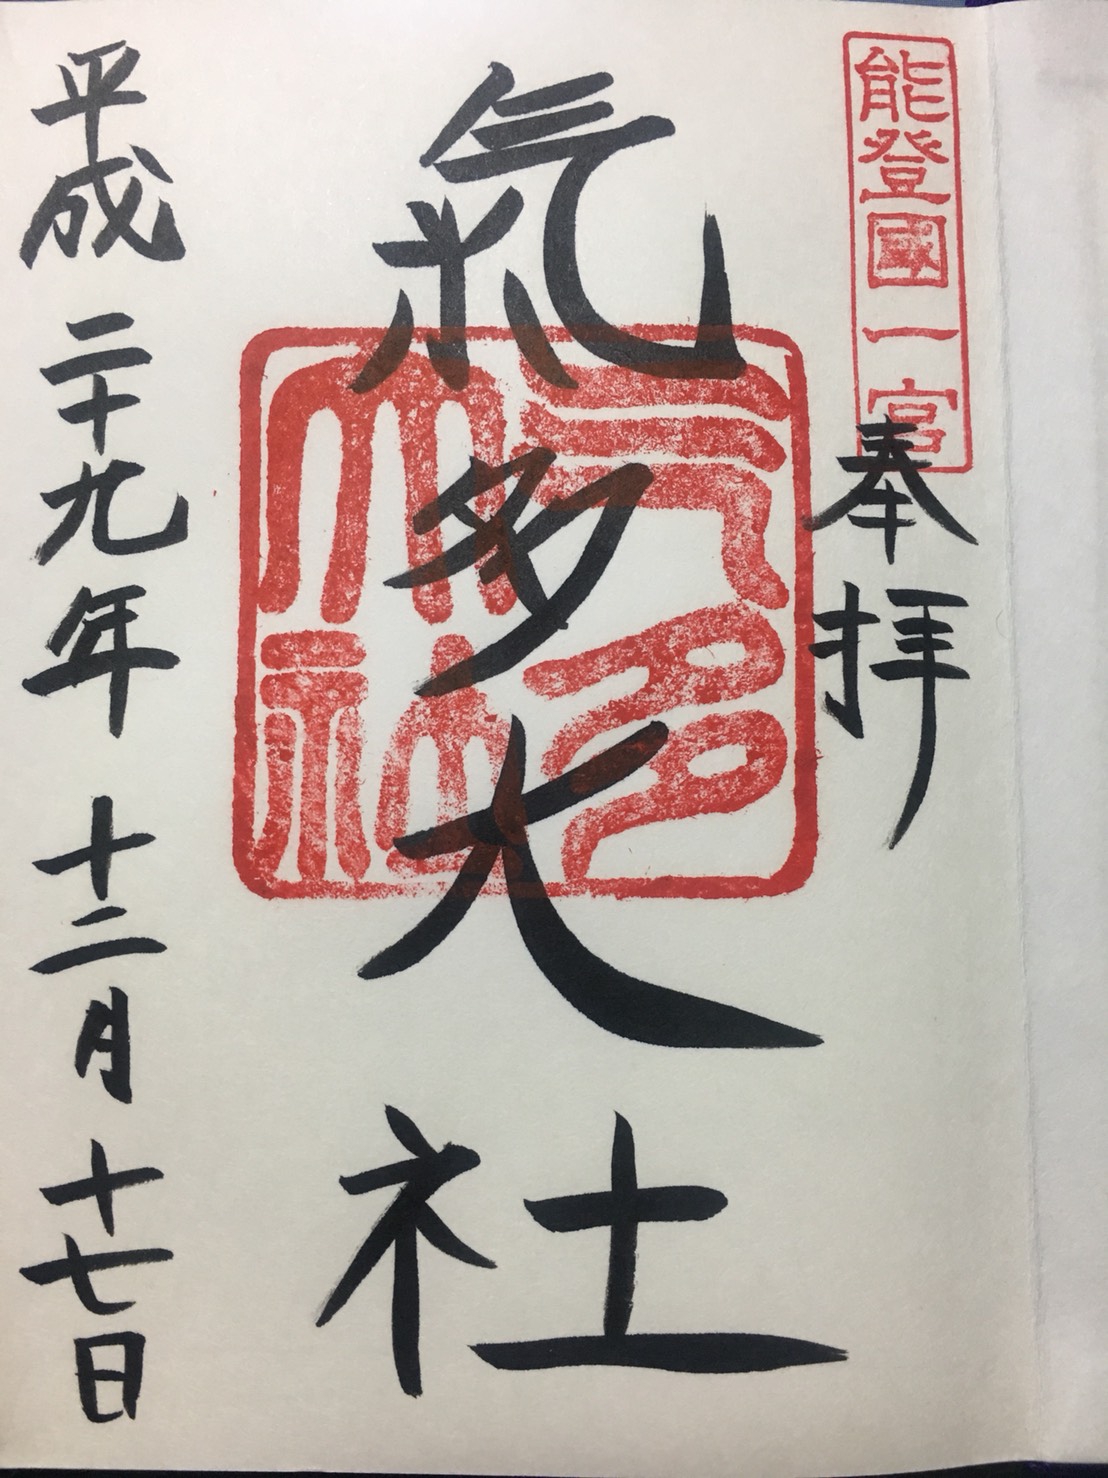 能登國一宮
奉拝
氣多大社
気多大社
平成二十九年十二月十七日